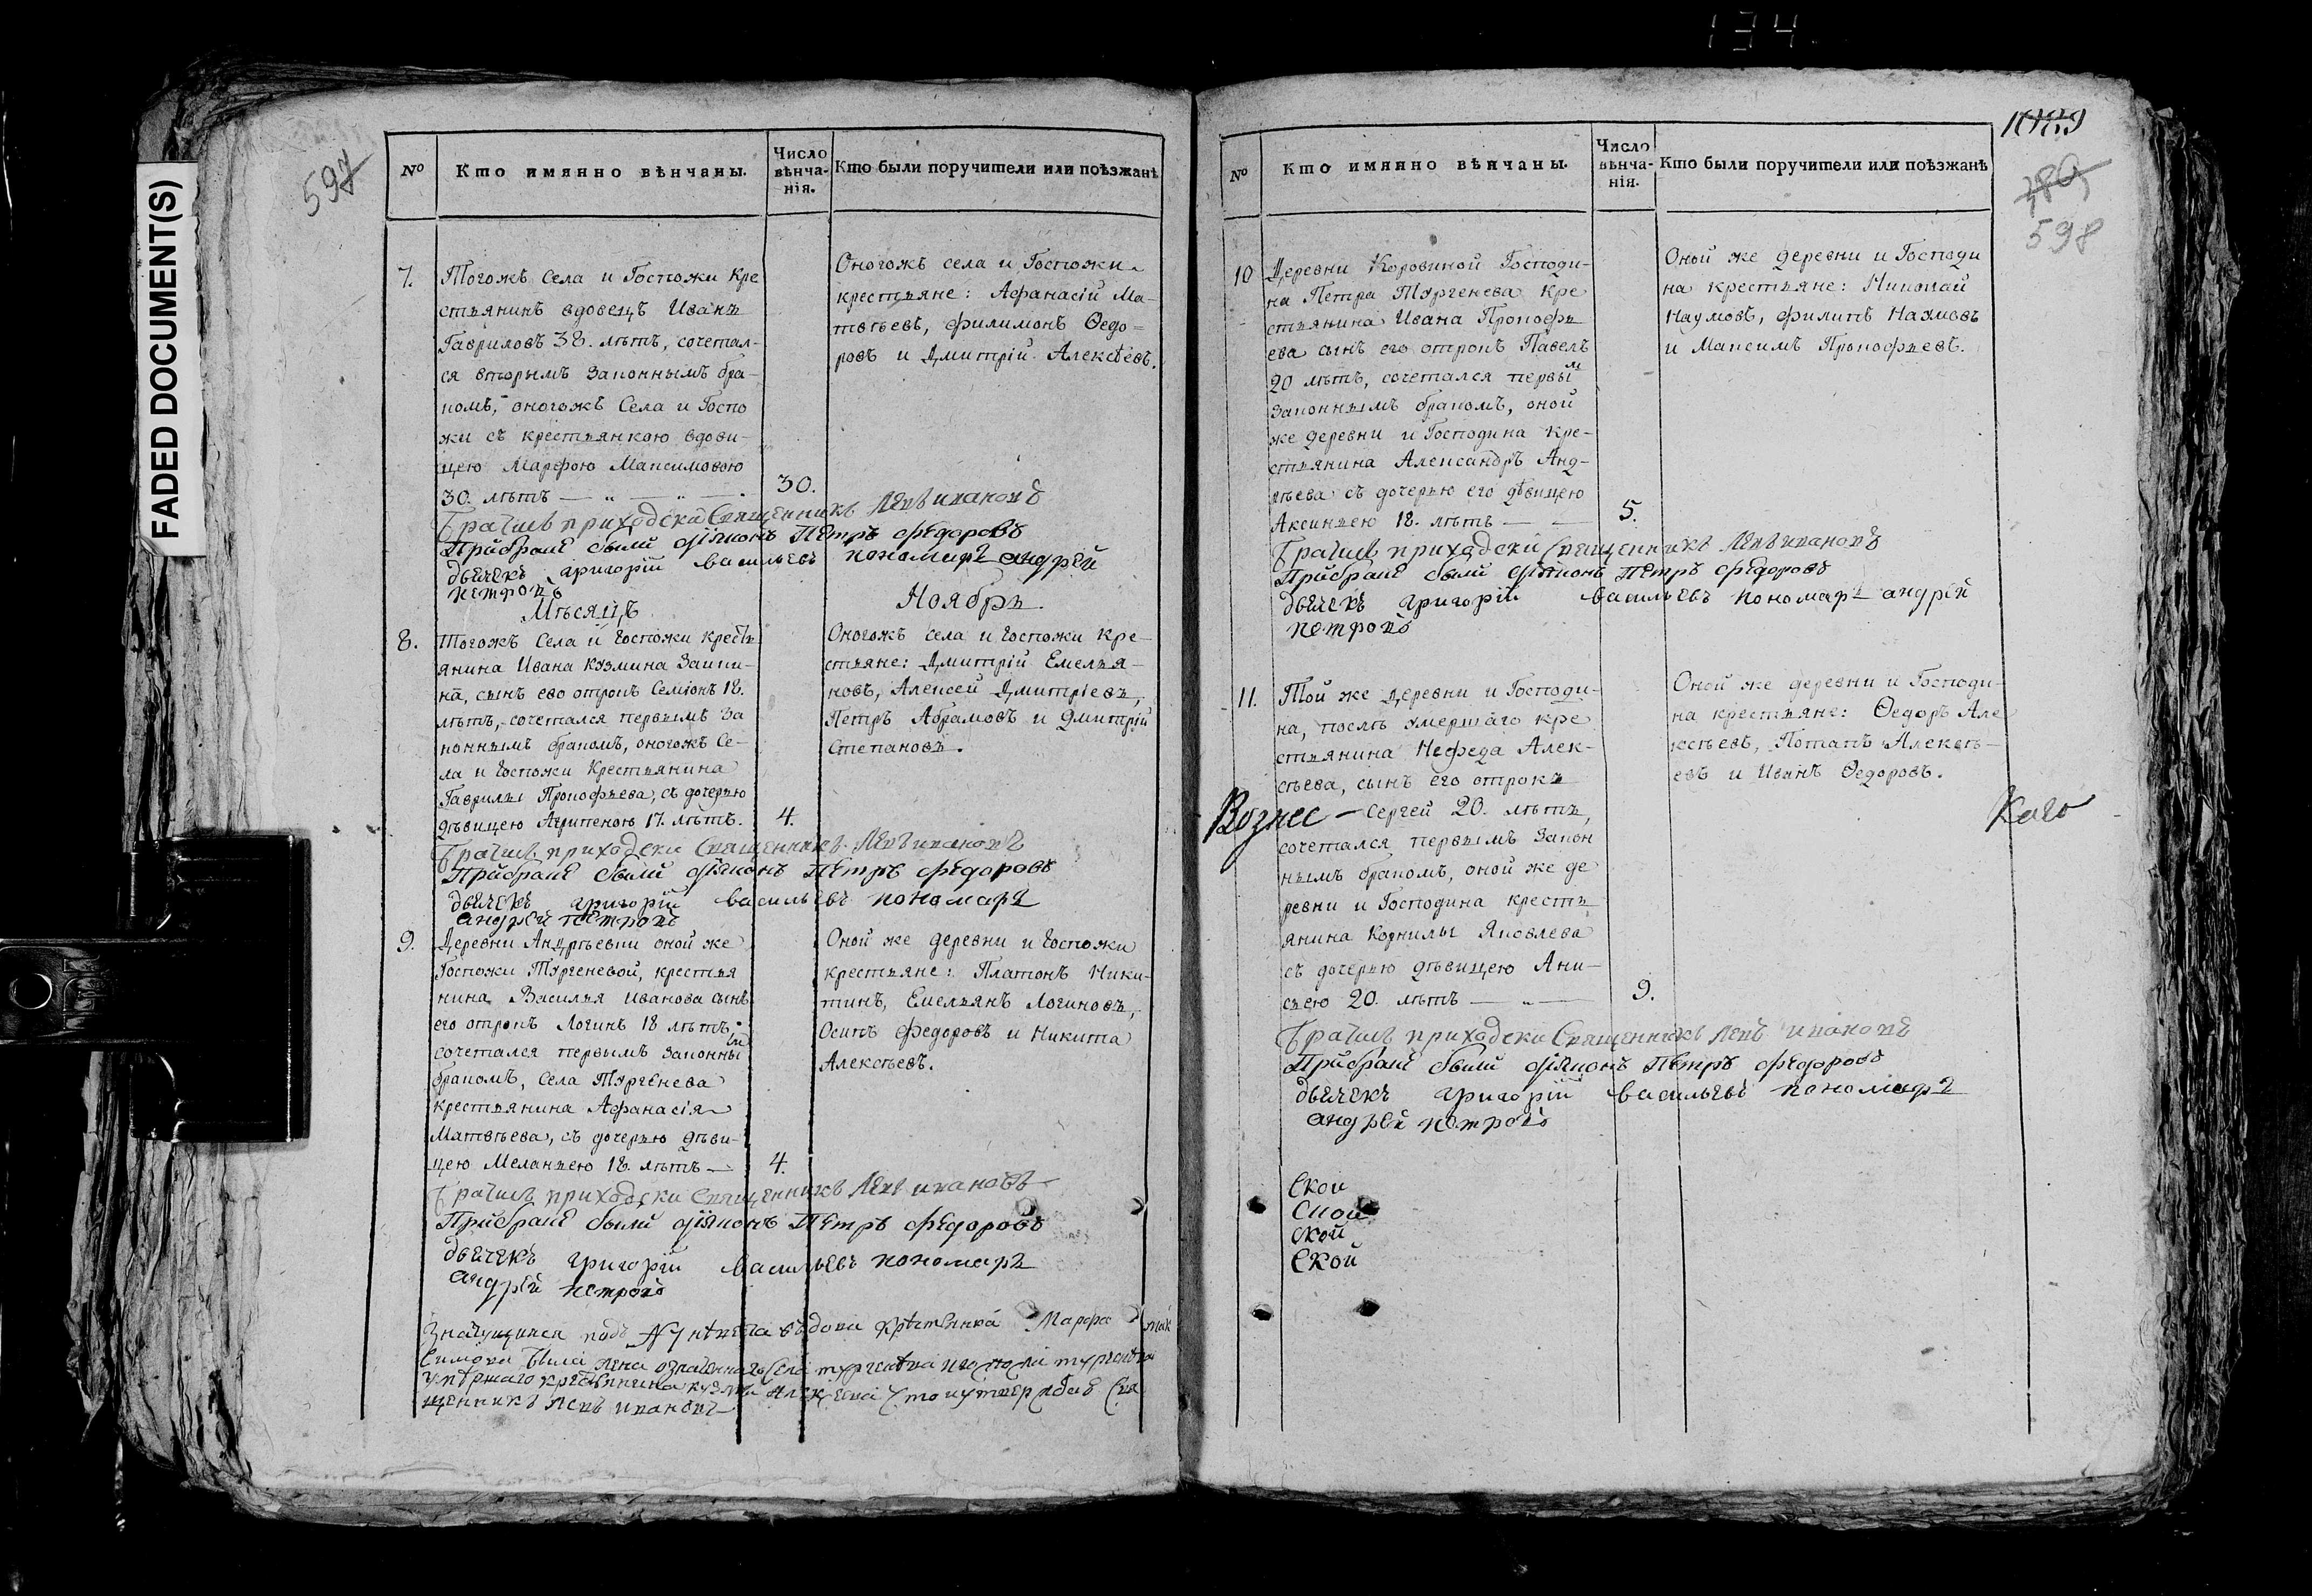 134.
FADED DOCUMENT(S)
597
№
Кто имянно вѣнчаны.
Число
вѣнча-
нія.
Кто были поручители или поѣзжанѣ
7.
Тогожъ Села и Госпожи кре
стьянинъ вдовецъ Иванъ
Гавриловъ 38. лѣтъ, сочетал-
ся вторымъ законнымъ бра-
комъ, оногожъ Села и Госпо
жи съ крестьянкою вдови-
цею Марфою Максимовою
30. лѣтъ
30.
Оногожъ села и Госпожи
крестьяне: Афанасій Ма-
твѣевъ, филимонъ Ѳедо=
ровъ и Дмитрій Алексѣевъ.
приходски Священникъ Левъ ивановъ
Прибраке были діяконъ Петръ федоровъ
дьячекъ григорій васильевъ пономарь андрей
петровъ
Мѣсяцъ
Ноябрь.
8.
Тогожъ Села и госпожи кресть
янина Ивана Кузмина Заики-
на, сынъ его отрокъ Семіонъ 18.
лѣтъ, сочетался первымъ за
коннымъ бракомъ, оногожъ Се-
ла и госпожи Крестьянина
Гаврилы Прокофьева, съ дочерью
дѣвицею Агрипеною 17. лѣтъ.
4.
Оногожъ села и госпожи кре-
стьяне: Дмитрій Емелья-
новъ, Алексей Дмитріевъ,
Петръ Абрамовъ и Дмитрій
Степановъ.
приходски Священникъ Левъ ивановъ
Прибраке были діяконъ Петръ федоровъ
дьячекъ григорій васильевъ пономарь
андрей петровъ
9.
Деревни Андрѣевки оной же
Госпожи Тургеневой, крестья
нина Василья Иванова сынъ
его отрокъ Логинъ 18 лѣтъ,
сочетался первымъ законны
мъ
бракомъ, Села Тургенева
крестьянина Афанасія
Матвѣева, съ дочерью дѣви-
цею Меланьею 18. лѣтъ —
4.
Оной же деревни и госпожи
крестьяне: Платонъ Ники-
тинъ, Емельянъ Логиновъ,
Осипъ федоровъ и Никита
Алексѣевъ.
приходски Священникъ Левъ ивановъ
Прибраке были діяконъ Петръ федоровъ
дьячекъ григорій васильевъ пономарь
андрей петровъ
подъ №7 вдова Марфа мак
симова жена села
умершаго крестьянина
щенникъ левъ ивановъ
1089
598
№
Кто имянно вѣнчаны.
Число
вѣнча-
нія.
Кто были поручители или поѣзжанѣ
10
Деревни Коровиной Господи-
на Петра Тургенева кре
стьянина Ивана Прокофь
ева сынъ его отрокъ Павелъ
20 лѣтъ, сочетался первы
м
законнымъ бракомъ, оной
же деревни и Господина кре-
стьянина Александръ Анд-
рѣева съ дочерью его дѣвицею
Аксиньею 18. лѣтъ — —
5.
Оной же деревни и Господи
на крестьяне: Николай
Наумовъ, филипъ Наумовъ
и Максимъ Прокофьевъ.
приходски Священникъ Левъ ивановъ
Прибраке были діяконъ Петръ федоровъ
дьячекъ григорій васильевъ пономарь андрей
петровъ
11.
Той же деревни и Господи-
на, послѣ умершаго кре
стьянина Нефеда Алек-
сѣева, сынъ его отрокъ
Вознес — Сергей 20. лѣтъ,
сочетался первымъ закон
нымъ бракомъ, оной же де
ревни и Господина кресть
янина Корнилы Яковлева
съ дочерью дѣвицею Ани-
сьею 20. лѣтъ
9.
Оной же деревни и Господи-
на крестьяне: Ѳедоръ Але
ксѣевъ, Потапъ Алексѣ-
евъ и Иванъ Ѳедоровъ.
приходски Священникъ Левъ ивановъ
Прибраке были діяконъ Петръ федоровъ
дьячекъ григорій васильевъ пономарь
андрей петровъ
Ской
Ской
ской
Ской